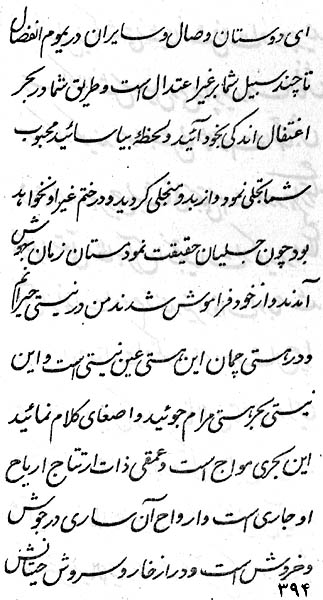 ای دوستان وصال و سایران در یموم انفصال
تا چند سبیل شما بر غیر اعتدال است و طریق شما در بحر
اغتفال اندکی بخود آئید و لحظهٔ بیاسائید محبوب
شما تجلی نمود و از بدو متجلی گردید و در ختم غیر او نخواهد
بود چون جلیان حقیقت نمودستان زمان بهوش
آمدند و از خود فراموش شدند من در نیستی حیرانم
و در هستی چمان این هستی عین نیستی است و این
نیستی بحر هستی مرام جوئید و اصغای کلام نمائید
این بحری مواج است و عمقی ذات ارتتاج ارباح
او جاری است و ارواح آن ساری در جوش
و خروش است و در از خار و سروش حیتانش
۳۹۴